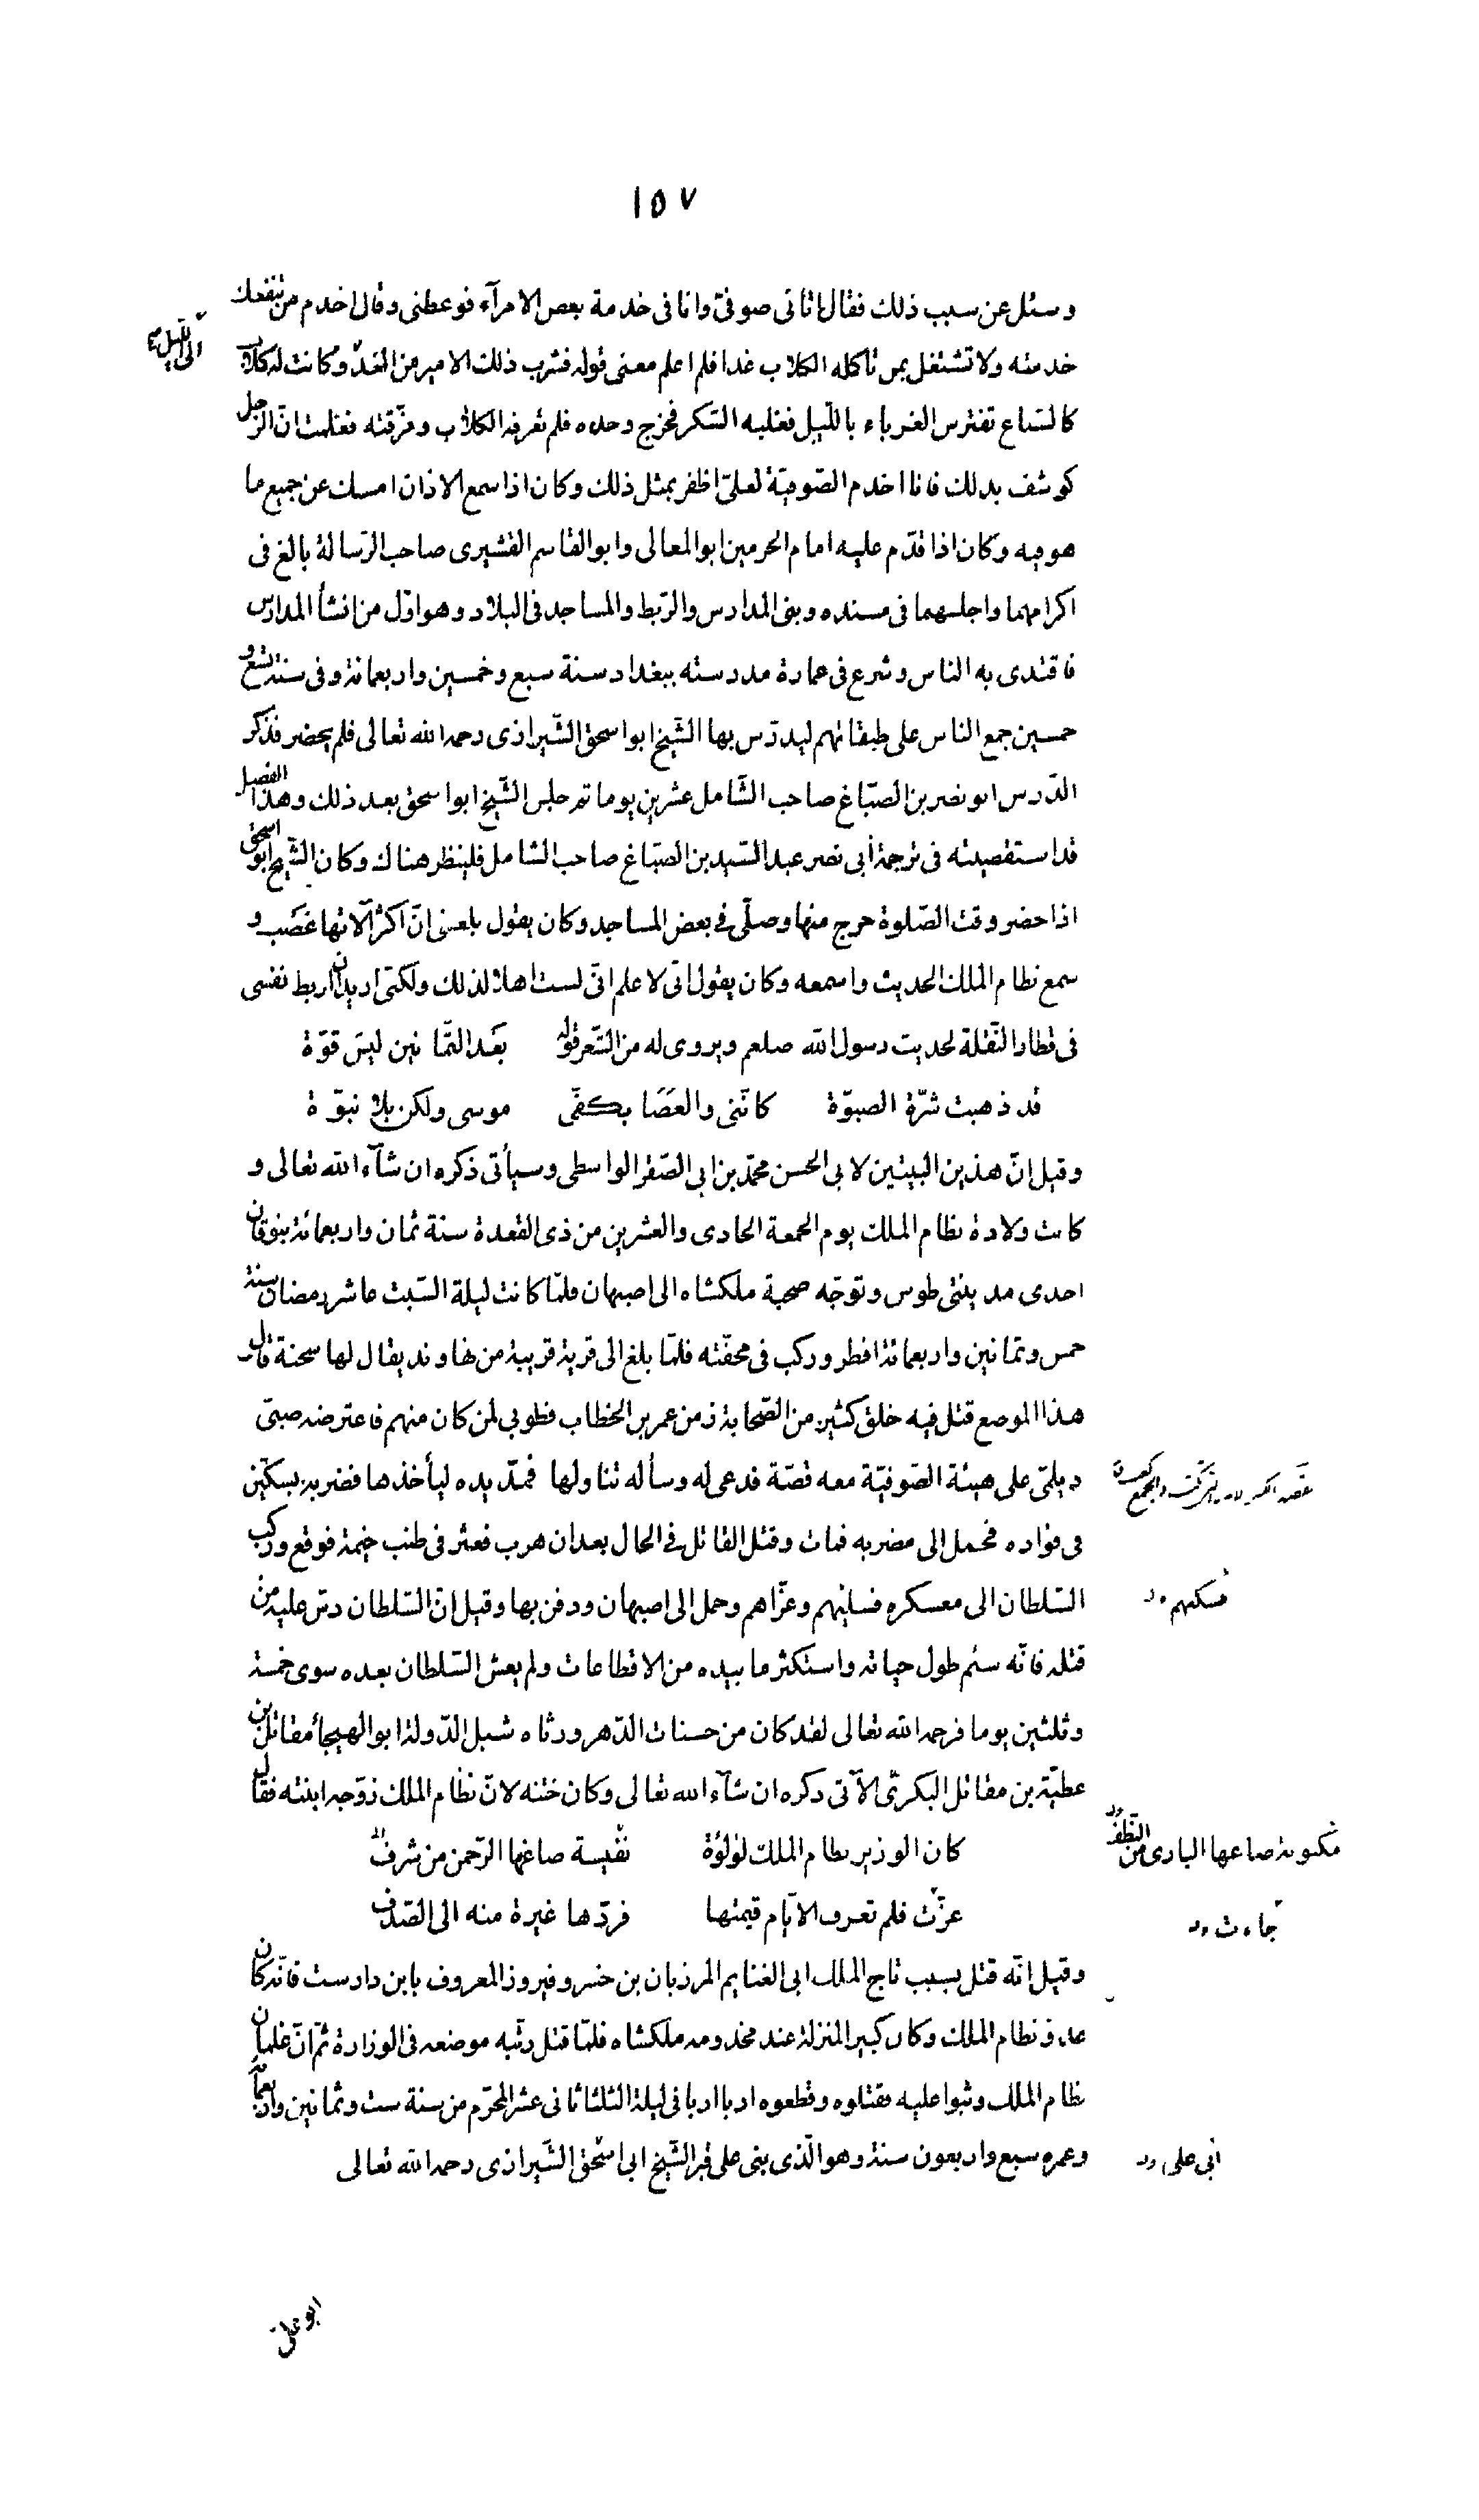 ١٥٧
وسئل عن سبب ذلك فقال اتانى صوفىّ وانا فى خدمة بعض الامرآء فوعظنى وقال اخدم من تنفعك
خدمته ولا تشتغل بمن تأكله الكلاب غدا فلم اعلم معنى قوله فشرب ذلك الامير من الغدّ وكانت له كلاب
الى الليل
كالسّباع تفترس الغرباء باللّيل فغلبه السّكر فخرج وحده فلم تعرفه الكلاب ومزّقته فعلمت انّ الرّجل
كوشف بذلك فانا اخدم الصّوفيّة لعلىّ اظفر بمثل ذلك وكان اذا سمع الاذان امسك عن جميع ما
هو فيه وكان اذا قدّم عليه امام الحرمين ابو المعالى وابو القاسم القشيرى صاحب الرّسالة بالغ فى
اكرامهما واجلسهما فى مسنده وبنى المدارس والرّبط والمساجد فى البلاد وهو اوّل من انشأ المدارس
فاقتدى به الناس وشرع فى عمارة مدرسته ببغداد سنة سبع وخمسين واربعمائة وفى سنة تسع و
خمسين جمع الناس على طبقاتهم ليدرّس بها الشّيخ ابو اسحق الشّيرازى رحمه الله تعالى فلم يحضر فذكر
الدّرس ابو نصر بن الصبّاغ صاحب الشّامل عشرين يوما ثم جلس الشّيخ ابو اسحق بعد ذلك وهذا الفصل
قد استقصيته فى ترجمة أبى نصر عبد السّيد بن الصبّاغ صاحب الشامل فلينظر هناك وكان الشّيخ ابو اسحق
اذا حضر وقت الصّلوة خرج منها وصلّى فى بعض المساجد وكان يقول بلغنى انّ اكثر آلاتها غصب و
سمع نظام الملك الحديث واسمعه وكان يقول انّى لاعلم انّى لست اهلا لذلك ولكنّى اريد ان اربط نفسى
فى قطار النّقلة لحديث رسول الله صلعم ويروى له من الشّعر قوله بعد الثّمانين ليس قوّة
قد ذهبت شرّة الصبوّة كانّنى والعصا بكفّى موسى ولكن بلا نبوّة
وقيل انّ هذين البيتين لابى الحسن محمّد بن ابى الصّقر الواسطى وسيأتى ذكره ان شآء الله تعالى و
كانت ولادة نظام الملك يوم الجمعة الحادى والعشرين من ذى القعدة سنة ثمان واربعمائة بنوقان
احدى مدينتى طوس وتوجّه صحبة ملكشاه الى اصبهان فلمّا كانت ليلة السّبت عاشر رمضان سنة
خمس وثمانين واربعمائة افطر وركب فى محفّته فلمّا بلغ الى قرية قريبة من نهاوند يقال لها سحنة قال
هذا الموضع قتل فيه خلق كثير من الصّحابة زمن عمر بن الخطاب فطوبى لمن كان منهم فاعترضه صبىّ
ديلمىّ على هيئة الصّوفيّة معه قصّة فدعى له وسأله تناولها فمدّ يده ليأخذها فضربه بسكّين
فى فؤاده فحمل الى مضربه فمات وقتل القاتل فى الحال بعد ان هرب فعثر فى طنب خيمة فوقع وركب
السّلطان الى معسكره فسلّيهم وعزّاهم وحمل الى اصبهان ودفن بها وقيل انّ السّلطان دسّ عليه من
فسكنهم
قتله فانّه سئم طول حياته واستكثر ما بيده من الاقطاعات ولم يعش السّلطان بعده سوى خمسة
وثلثين يوما فرحمه الله تعالى لقد كان من حسنات الدّهر ورثاه شبل الدّولة ابو الهيجأ مقاتل بن
عطيّة بن مقاتل البكرىّ الآتى ذكره ان شآء الله تعالى وكان ختنه لانّ نظام الملك زوّجه ابنته فقال
كان الوزير نظام الملك لؤلؤة نفيسة صاغها الرّحمن من شرف
مكنونة صاغها البارى من النّطف
عزّت فلم تعرف الايّام قيمتها فردّها غيرة منه الى الصّدف
جاءت
وقيل انّه قتل بسبب تاج الملك ابى الغنايم المرزبان بن خسرو فيروز المعروف بابن دارست فانّه كان
عدوّ نظام الملك وكان كبير المنزلة عند مخدومه ملكشاه فلمّا قتل رتّبه موضعه فى الوزارة ثمّ انّ غلمان
نظام الملك وثبوا عليه فقتلوه وقطعوه اربا اربا فى ليلة الثلثا ثانى عشر المحرّم من سنة ست وثمانين واربعمائة
وعمره سبع واربعون سنة وهو الّذى بنى على قبر الشّيخ ابى اسحق الشّيرازى رحمه الله تعالى
أبى على
ابو على